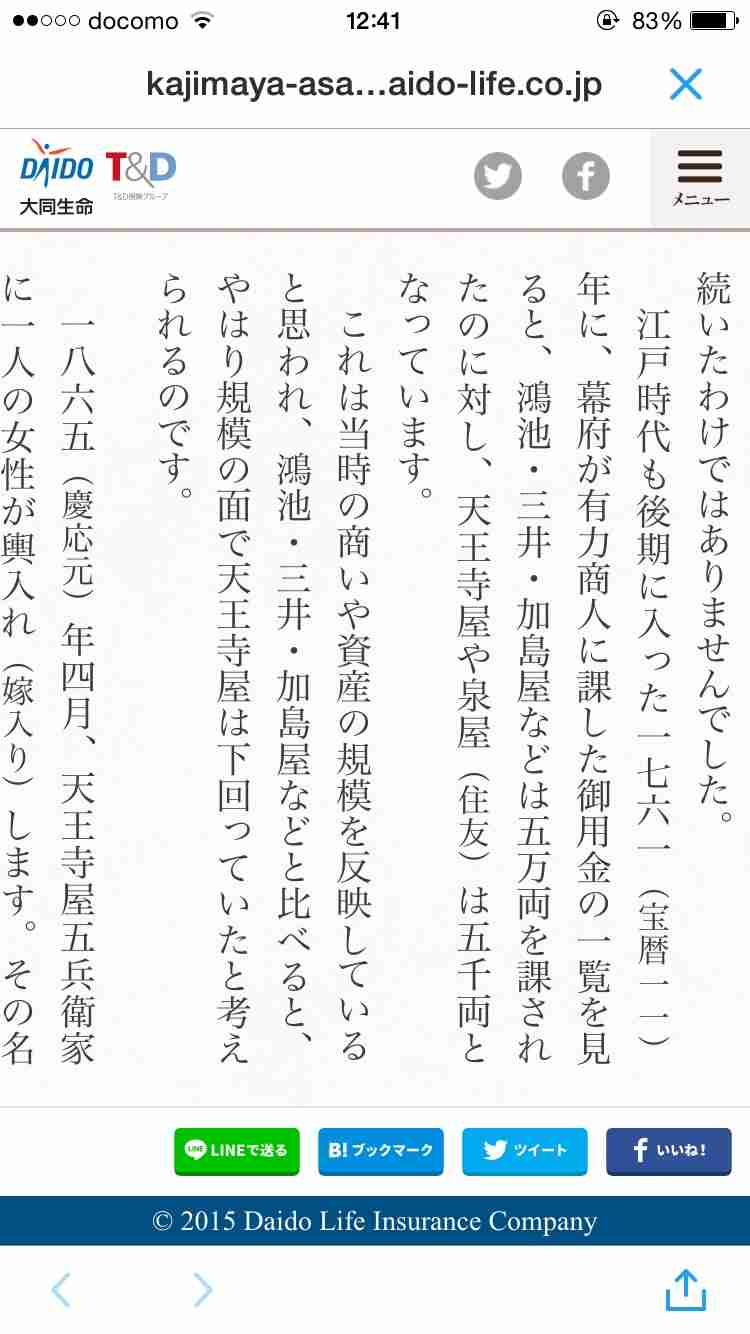 docomo 12:41 83%
kajimaya-asa...aido-life.co.jp
DAIDO
大同生命
T&D
T&D保険グループ
メニュー
続いたわけではありませんでした。
江戸時代も後期に入った一七六一（宝暦一一）
年に、幕府が有力商人に課した御用金の一覧を見
ると、鴻池・三井・加島屋などは五万両を課され
たのに対し、天王寺屋や泉屋（住友）は五千両と
なっています。
これは当時の商いや資産の規模を反映している
と思われ、鴻池・三井・加島屋などと比べると、
やはり規模の面で天王寺屋は下回っていたと考え
られるのです。
一八六五（慶応元）年四月、天王寺屋五兵衛家
に一人の女性が輿入れ（嫁入り）します。その名
LINEで送る
B!ブックマーク
ツイート
いいね！
© 2015 Daido Life Insurance Company